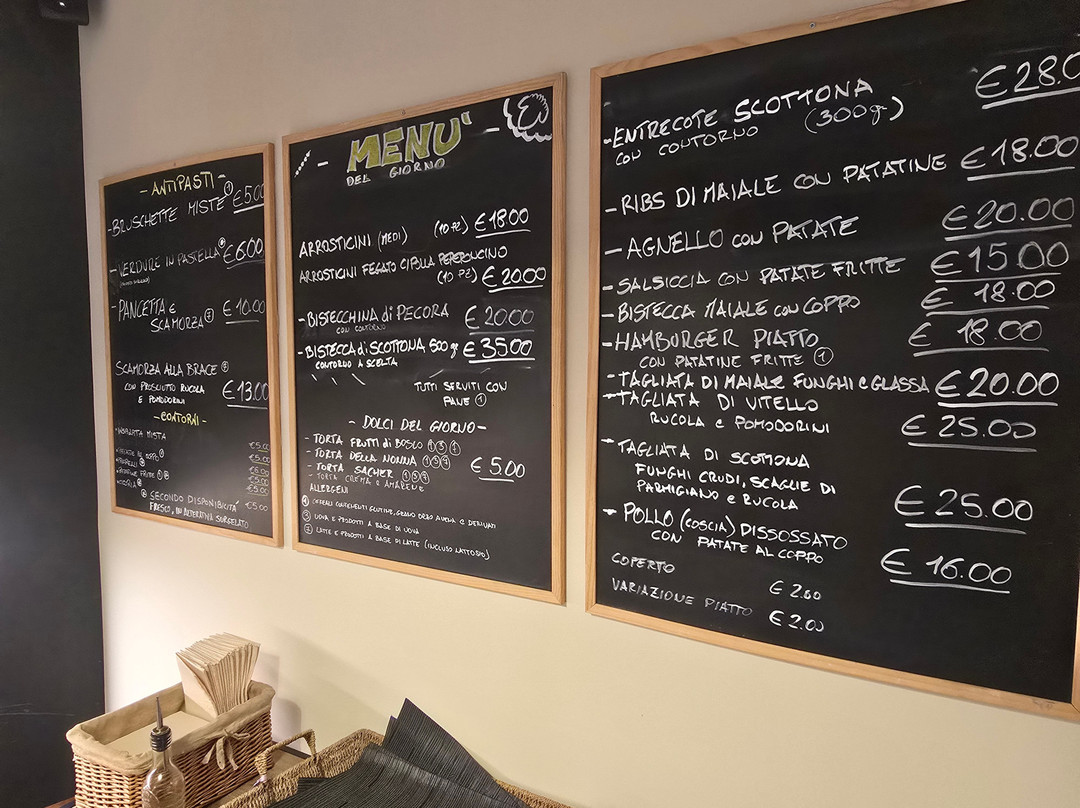 - ANTIPASTI -
- BRUSCHETTE MISTE ① € 5.00
- VERDURE IN PASTELLA € 6.00
- PANCETTA E € 10.00
SCAMORZA ⑦
SCAMORZA ALLA BRACE ⑦
CON PROSCIUTTO RUCOLA € 13.00
E POMODORINI
- CONTORNI -
MISTA €5.00
€5.00
FRITTE €6.00
€5.00
€5.00
SECONDO DISPONIBILITÀ €5.00
FRESCO, IN ALTERNATIVA SURGELATO
- MENU' -
DEL GIORNO
ARROSTICINI (MEDI) (10 PZ) € 18.00
ARROSTICINI FEGATO CIPOLLA PEPERONCINO
(10 PZ) € 20.00
- BISTECCHINA di PECORA € 20.00
CON CONTORNO
- BISTECCA di SCOTTONA 500 gr € 35.00
CONTORNO A SCELTA
TUTTI SERVITI CON
PANE ①
DOLCI DEL GIORNO -
- TORTA FRUTTI di BOSCO ① ③ ⑦
- TORTA DELLA NONNA ① ③ ⑦ € 5.00
- TORTA SACHER ① ③ ⑦
- TORTA CREMA E AMARENE
ALLERGENI
① CEREALI CONTENENTI GLUTINE, GRANO ORZO AVENA E DERIVATI
③ UOVA E PRODOTTI A BASE DI UOVA
⑦ LATTE E PRODOTTI A BASE DI LATTE (INCLUSO LATTOSIO)
- ENTRECOTE SCOTTONA € 28.0
CON CONTORNO (300gr)
- RIBS DI MAIALE CON PATATINE € 18.00
- AGNELLO CON PATATE € 20.00
- SALSICCIA CON PATATE FRITTE € 15.00
- BISTECCA MAIALE CON COPPO € 18.00
- HAMBURGER PIATTO € 18.00
CON PATATINE FRITTE ①
- TAGLIATA DI MAIALE FUNGHI e GLASSA € 20.00
- TAGLIATA DI VITELLO
RUCOLA e POMODORINI € 25.00
- TAGLIATA DI SCOTTONA
FUNGHI CRUDI, SCAGLIE DI
PARMIGIANO e RUCOLA € 25.00
- POLLO (COSCIA) DISSOSSATO
CON PATATE AL COPPO € 16.00
COPERTO € 2.00
VARIAZIONE PIATTO € 2.00